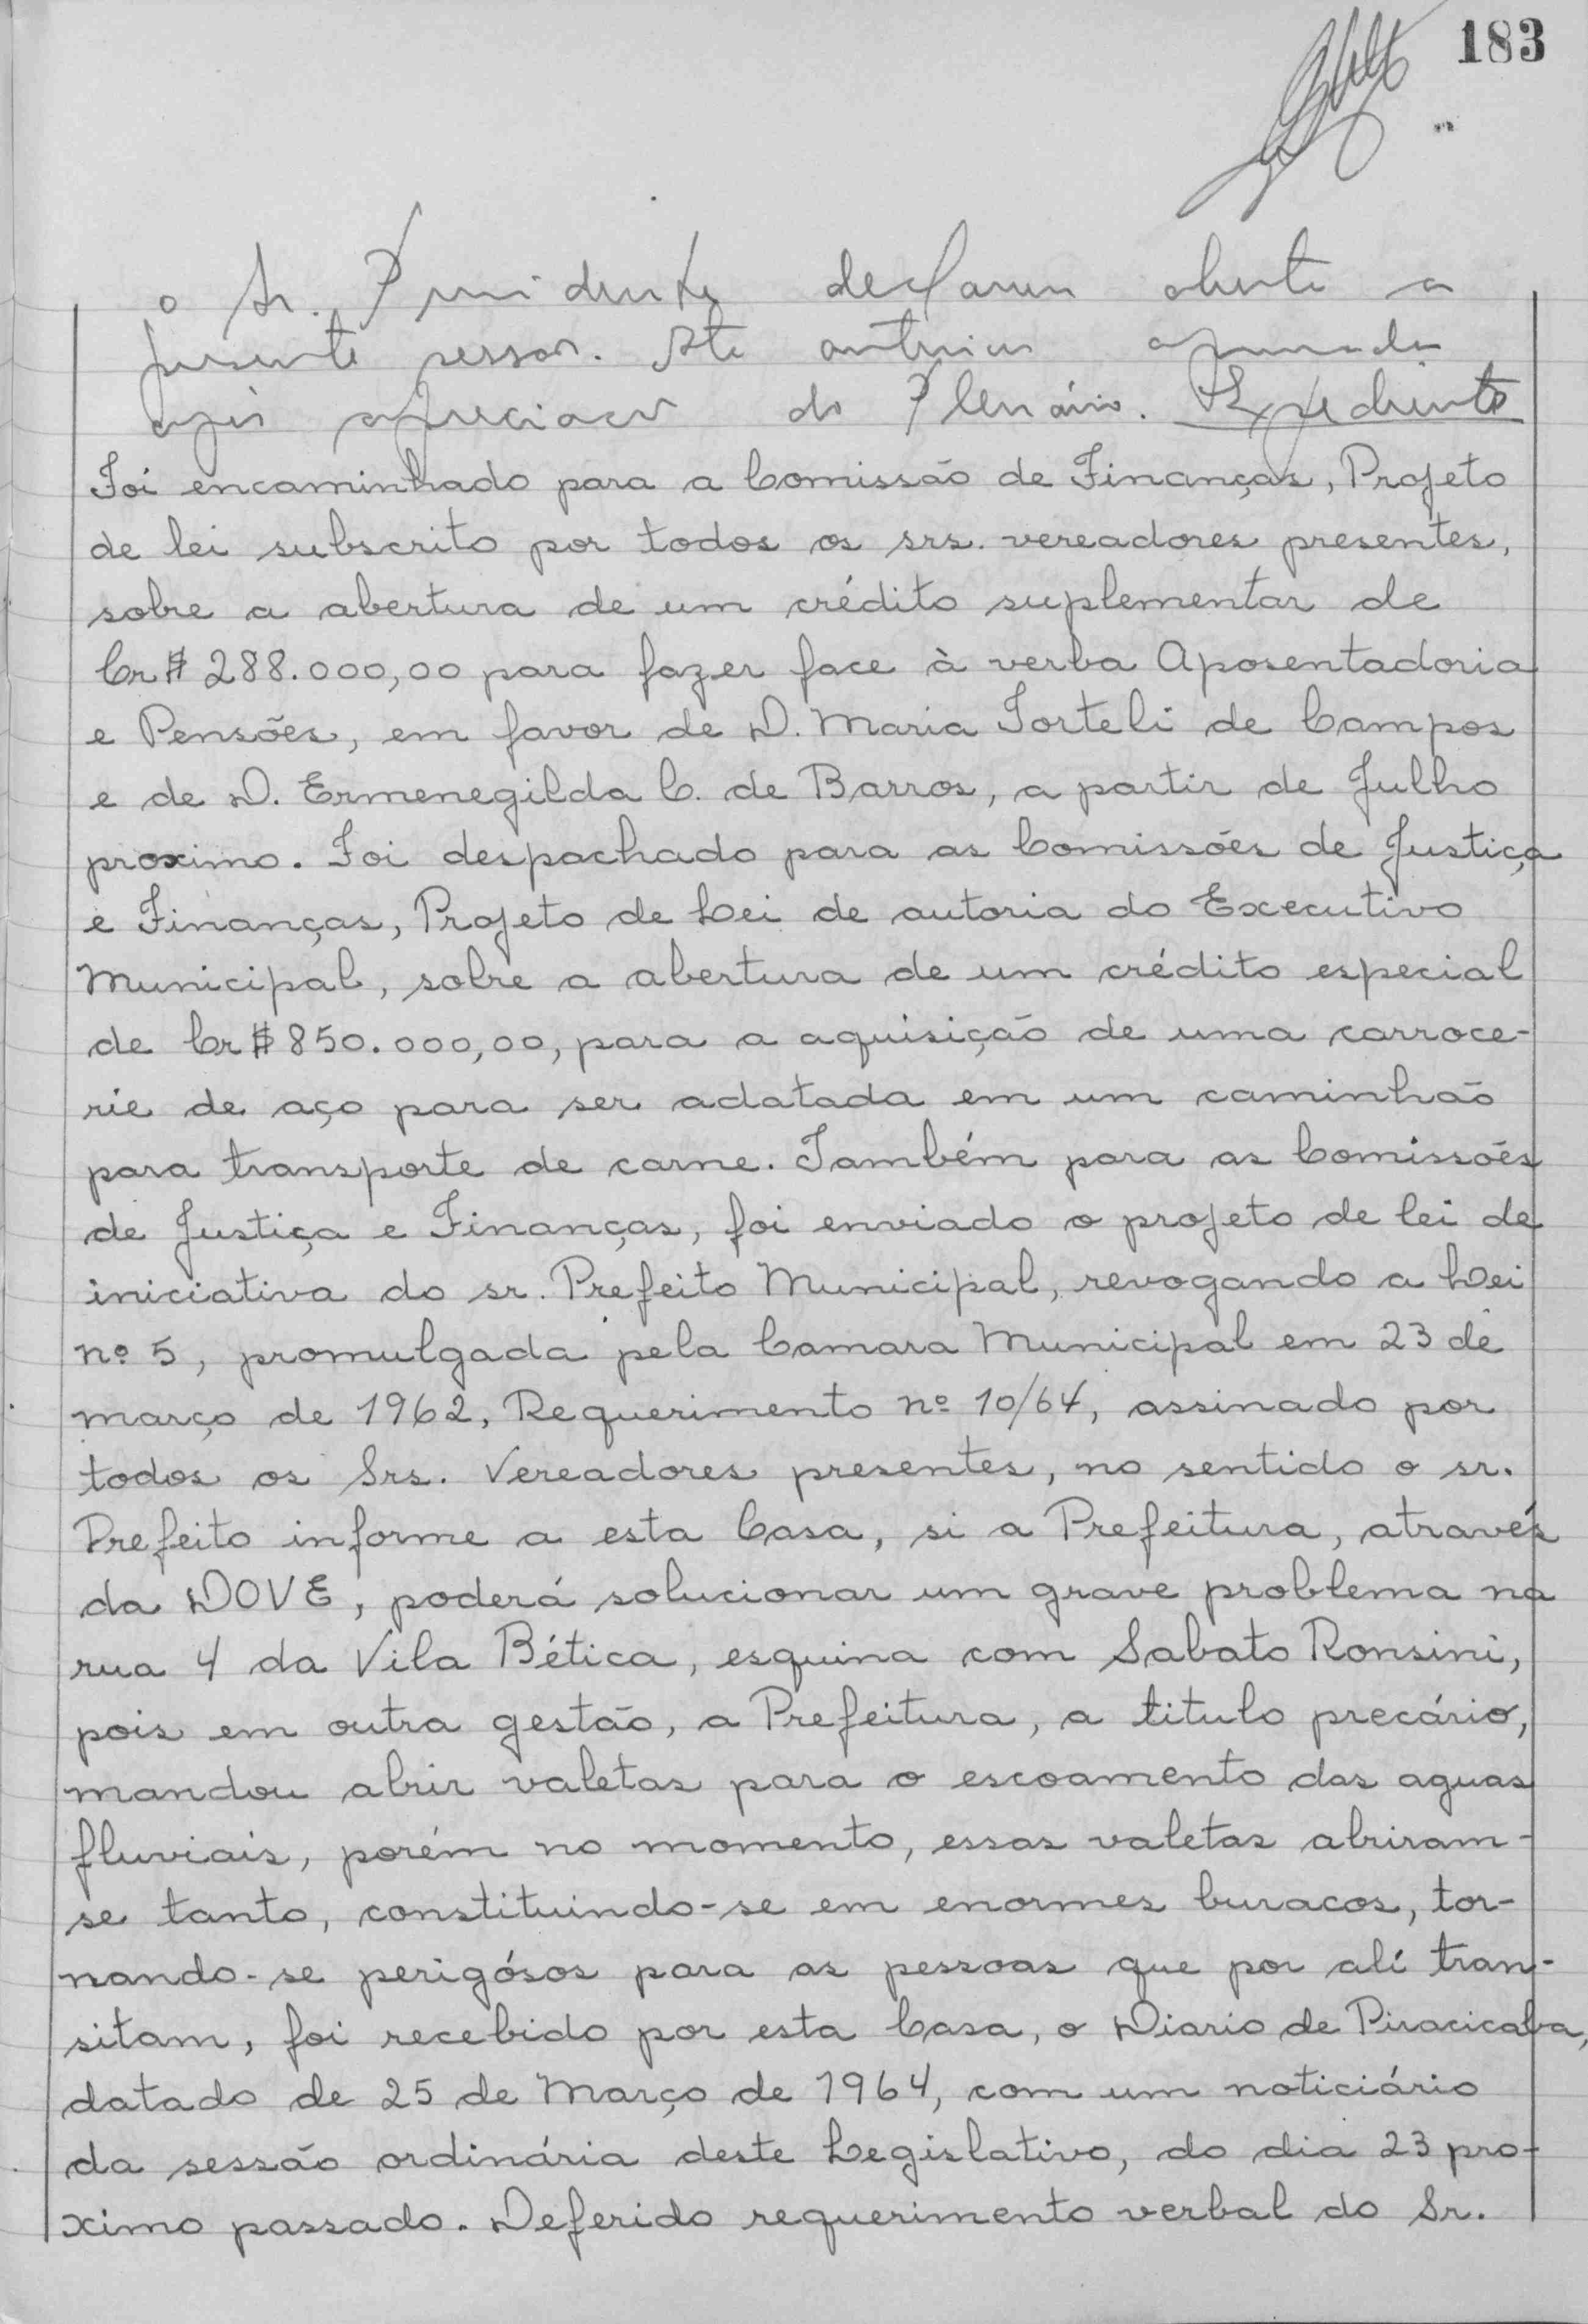 183
o Sr. Presidente declarou aberta a
presente sessão. Ata anterior aprovada
após apreciação do Plenário. Expediente
Foi encaminhado para a Comissão de Finanças, Projeto
de lei subscrito por todos os srs. vereadores presentes,
sobre a abertura de um crédito suplementar de
Cr$ 288.000,00 para fazer face à verba Aposentadoria
e Pensões, em favor de D. Maria Torteli de Campos
e de D. Ermenegilda C. de Barros, a partir de Julho
proximo. Foi despachado para as Comissões de Justiça
e Finanças, Projeto de Lei de autoria do Executivo
Municipal, sobre a abertura de um crédito especial
de Cr$ 850.000,00, para a aquisição de uma carroce-
rie de aço para ser adatada em um caminhão
para transporte de carne. Também para as Comissões
de Justiça e Finanças, foi enviado o projeto de lei de
iniciativa do sr. Prefeito Municipal, revogando a Lei
nº 5, promulgada pela Camara Municipal em 23 de
março de 1962, Requerimento nº 10/64, assinado por
todos os Srs. Vereadores presentes, no sentido o sr.
Prefeito informe a esta Casa, si a Prefeitura, através
da DOVE, poderá solucionar um grave problema na
rua 4 da Vila Bética, esquina com Sabato Ronsini,
pois em outra gestão, a Prefeitura, a titulo precário,
mandou abrir valetas para o escoamento das aguas
fluviais, porém no momento, essas valetas abriram-
se tanto, constituindo-se em enormes buracos, tor-
nando-se perigósos para as pessoas que por alí tran-
sitam, foi recebido por esta Casa, o Diario de Piracicaba,
datado de 25 de Março de 1964, com um noticiário
da sessão ordinária deste Legislativo, do dia 23 pro-
ximo passado. Deferido requerimento verbal do Sr.